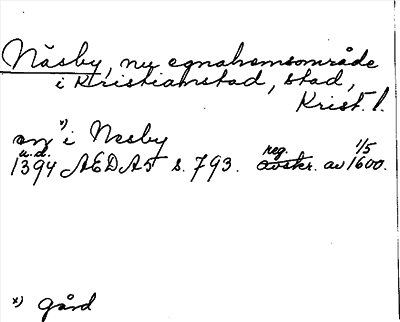 Näsby, nu egnahemsområde
i Kristianstad, stad,
Krist. l.
en x) i Nesby
u.d.
1394 ÆDA5 s. 793. reg. avskr. av 1/5 1600.
x) gård